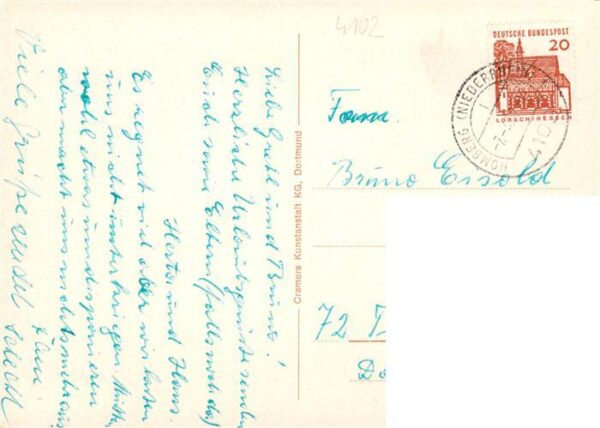 4102
DEUTSCHE BUNDESPOST
20
LORSCH/HESSEN
HOMBERG (NIEDERRHEIN)
410
Fam.
Bruno Eisold
72 T
Cramers Kunstanstalt KG, Dortmund
Liebe Gretl und Bruno!
Herzliche Urlaubsgrüße senden
Euch sowie Eltern falls noch da
Herta und Hans
Es regnet viel aber wir lassen
uns nicht unterkriegen. Mutti
wohl etwas
aber macht uns nichts mehr aus
Viele Grüße sendet